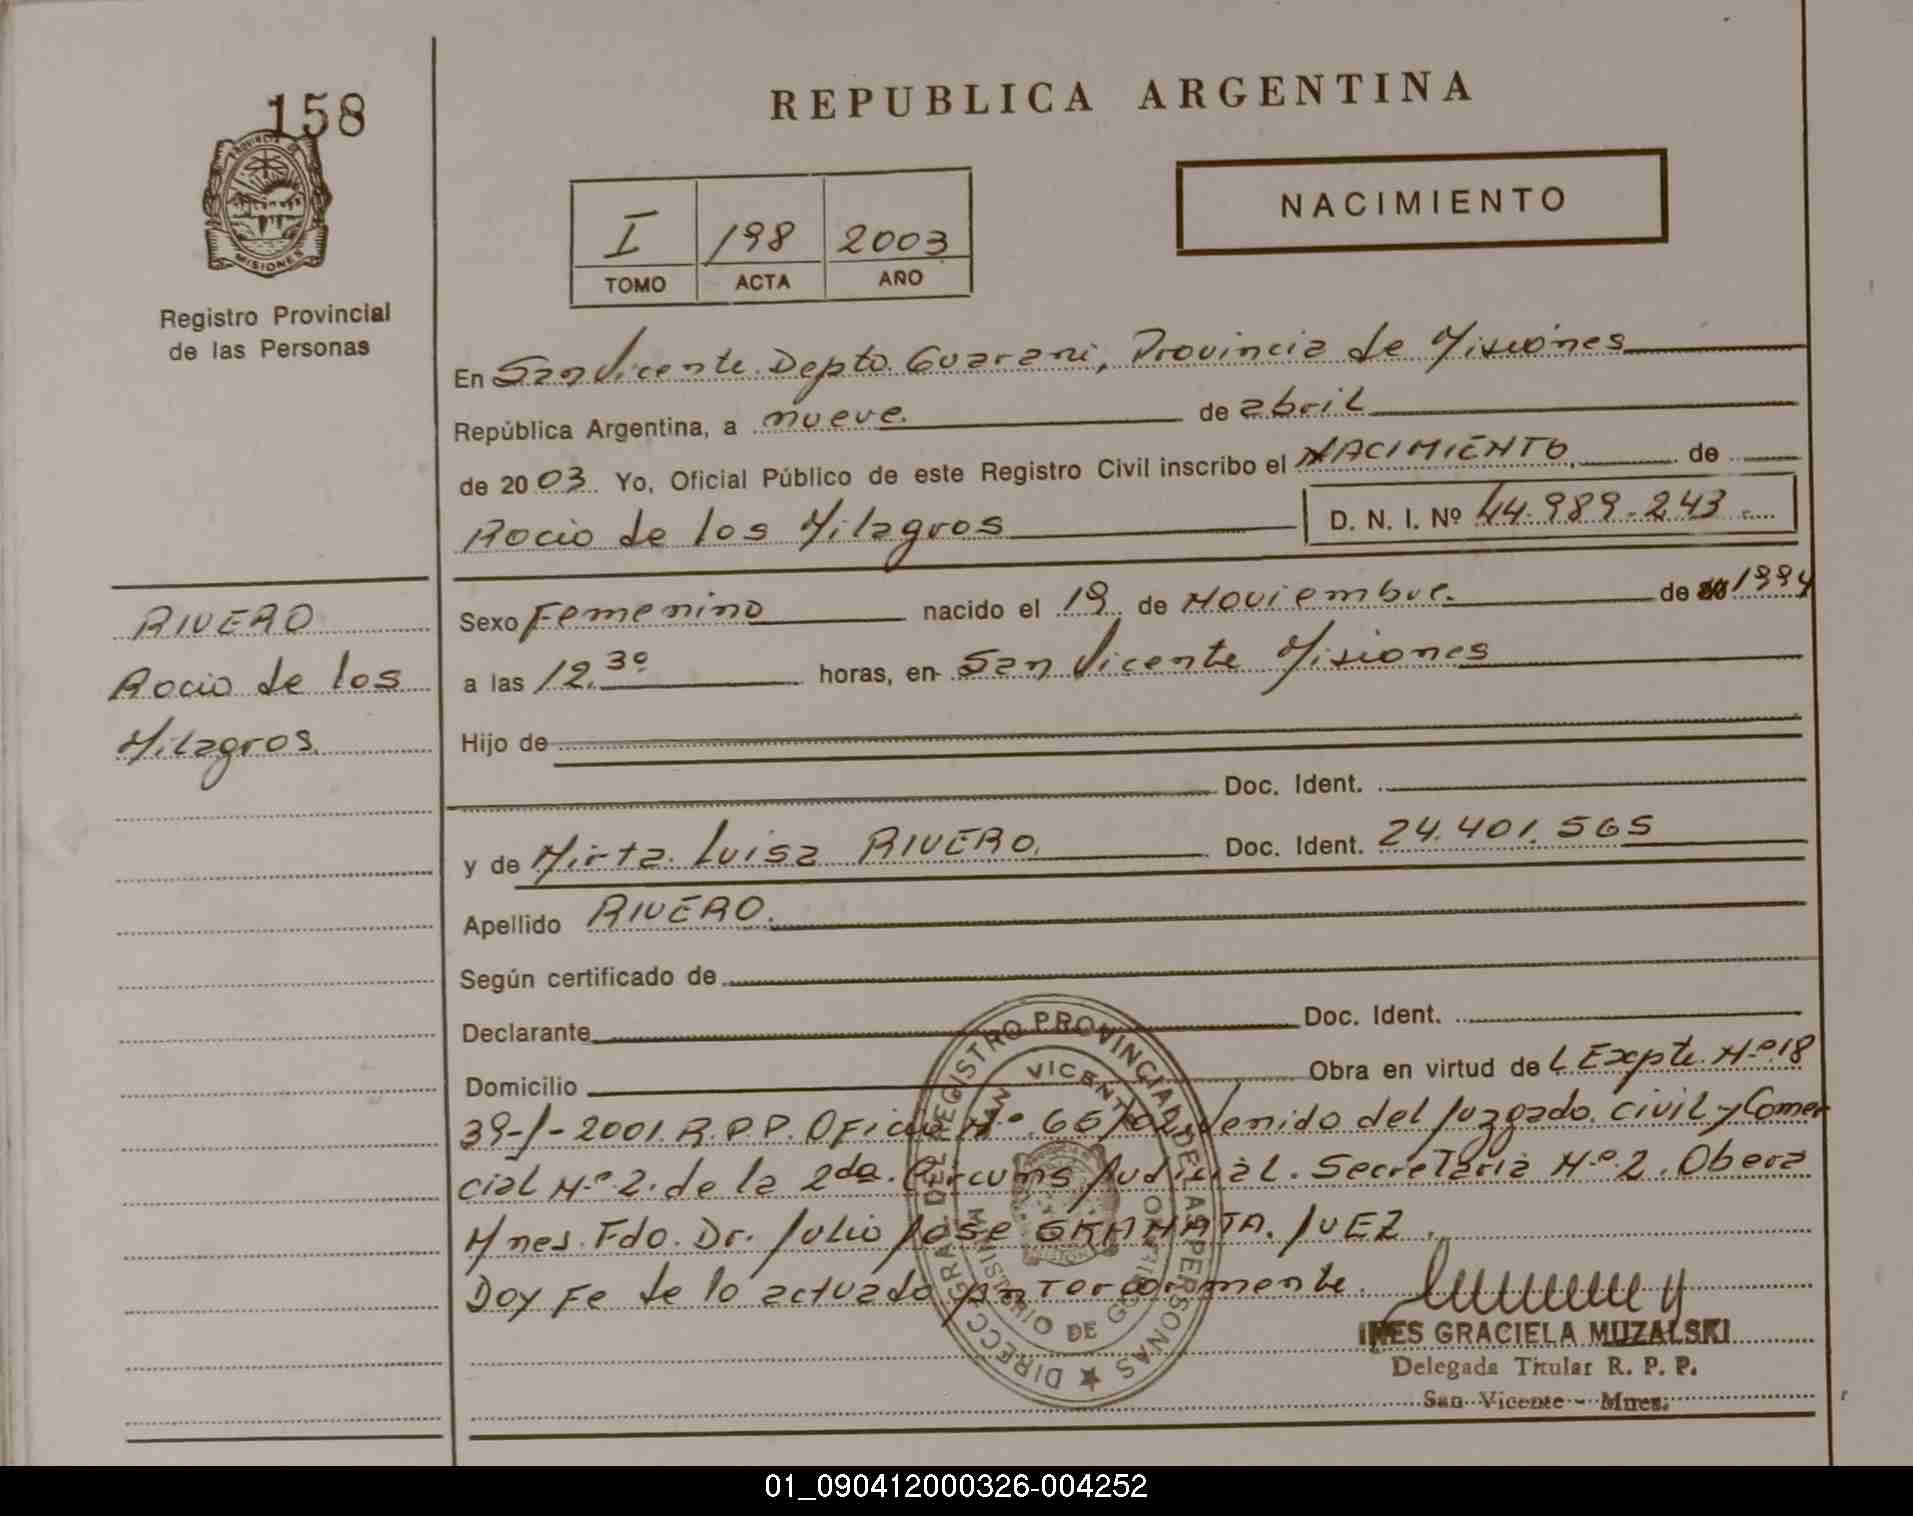 158
PROVINCIA DE
MISIONES
Registro Provincial
de las Personas
REPUBLICA ARGENTINA
I 198 2003
TOMO ACTA AÑO
NACIMIENTO
En San Vicente Depto. Guarani, Provincia de Misiones
República Argentina, a nueve. de abril
de 2003 Yo, Oficial Público de este Registro Civil inscribo el NACIMIENTO. de
Rocio de los Milagros D. N. I. Nº 44.989.243.
RIVERO
Rocio de los
Milagros.
Sexo Femenino nacido el 19 de Noviembre. de 1994
a las 12.30 horas, en San Vicente Misiones
Hijo de
Doc. Ident.
y de Mirta Luisa RIVERO. Doc. Ident. 24.401.565
Apellido RIVERO.
Según certificado de
Declarante Doc. Ident.
Domicilio Obra en virtud de L Expte. Nº 18
39-/-2001. R.P.P. Oficio Nº 66/02, venido del Juzgado. Civil y Comer
cial Nº 2. de la 2da. Circuns Judicial. Secretaria Nº 2. Obera
Mnes. Fdo. Dr. Julio Jose JUEZ.
Doy Fe de lo actuado anteriormente.
DIRECC. GRAL. DEL REGISTRO PROVINCIAL DE LAS PERSONAS
SAN VICENTE
MINISTERIO DE GOBIERNO
INES GRACIELA MUZALSKI
Delegada Titular R. P. P.
San Vicente - Mnes.
01_090412000326-004252